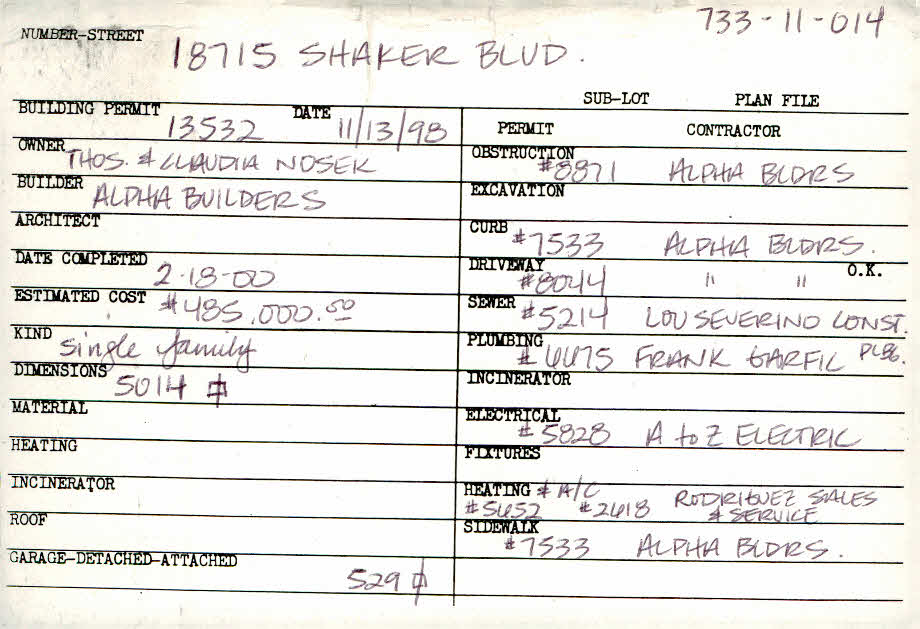 733-11-014
NUMBER-STREET
18715 SHAKER BLVD.
SUB-LOT PLAN FILE
BUILDING PERMIT 13532 DATE 11/13/98
OWNER THOS. & CLAUDIA NOSEK
BUILDER ALPHA BUILDERS
ARCHITECT
DATE COMPLETED 2-18-00
ESTIMATED COST #485,000.00
KIND single family
DIMENSIONS 5014
MATERIAL
HEATING
INCINERATOR
ROOF
GARAGE-DETACHED-ATTACHED
529
PERMIT CONTRACTOR
OBSTRUCTION #8871 ALPHA BLDRS
EXCAVATION
CURB #7533 ALPHA BLDRS.
DRIVEWAY #8044 " " O.K.
SEWER #5214 LOU SEVERINO CONST.
PLUMBING #6675 FRANK GARFIL PLBG.
INCINERATOR
ELECTRICAL #5828 A to Z ELECTRIC
FIXTURES
HEATING & A/C RODRIGUEZ SALES
#5652 #2618 & SERVICE
SIDEWALK #7533 ALPHA BLDRS.